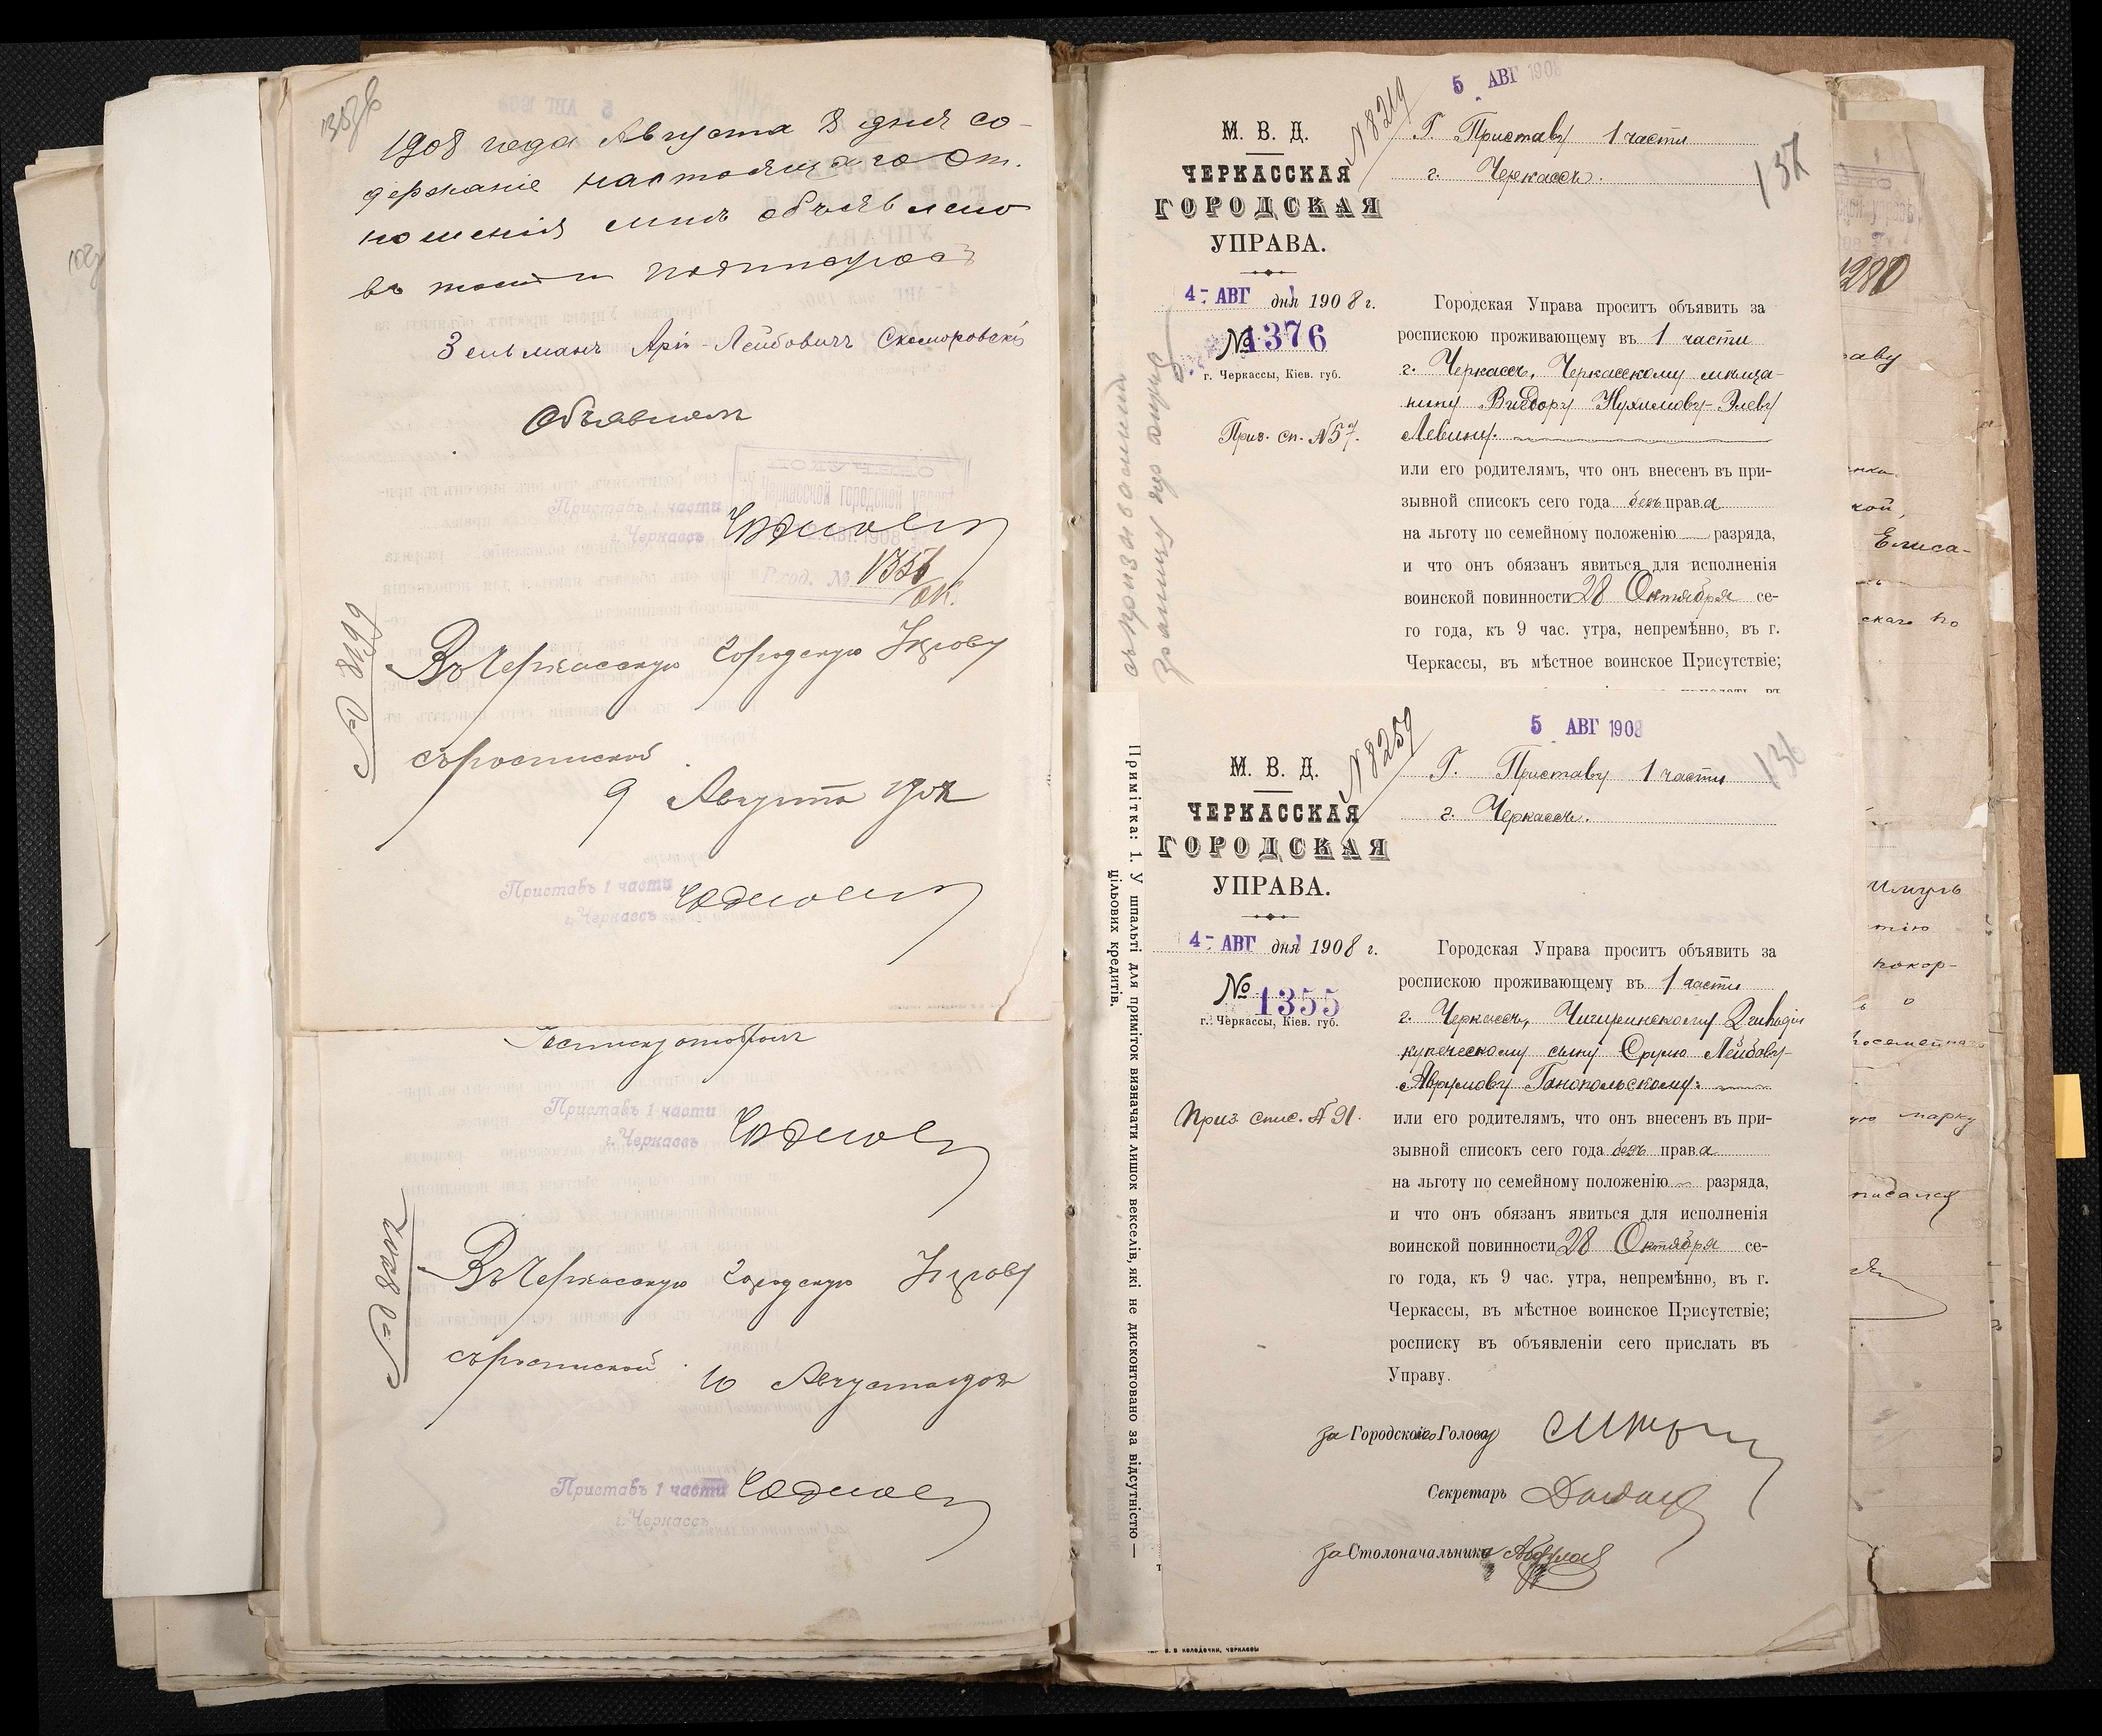 1908 года Августа 8 дня со-
держаніе настоящаго От.
ношенія мнѣ объявлено
въ томъ и подписуюсь
Зельманъ Арiй-Лейбовичъ Скоморовскій
Объявилъ
Приставъ 1 части
г. Черкассъ
АВГ. 1908
Вход. №
№ 8199
Въ Черкасскую Городскую Управу
съ роспиской
9 Августа 1908
Приставъ 1 части
г. Черкассъ
Росписку отобралъ
Приставъ 1 части
г. Черкассъ
№
Въ Черкасскую Городскую Управу
съ роспиской
10 Августа 1908
Приставъ 1 части
г. Черкассъ
5 АВГ 1908
N 8219
137
М. В. Д.
ЧЕРКАССКАЯ
ГОРОДСКАЯ
УПРАВА.
4- АВГ дня 1908 г.
№ 1376
г. Черкассы, Кіев. губ.
Приз. сп. №57.
Г. Приставу 1 части
г. Черкассъ.
Городская Управа проситъ объявить за
роспискою проживающему въ 1 части
г. Черкассъ, Черкасскому мѣща-
нину Вигдору Нухимову-Элеву
Левину.
или его родителямъ, что онъ внесенъ въ при-
зывной списокъ сего года безъ права
на льготу по семейному положенію — разряда,
и что онъ обязанъ явиться для исполненія
воинской повинности 28 Октября се-
го года, къ 9 час. утра, непремѣнно, въ г.
Черкассы, въ мѣстное воинское Присутствіе;
5 АВГ 1908
N 8259
136
М. В. Д.
ЧЕРКАССКАЯ
ГОРОДСКАЯ
УПРАВА.
4- АВГ дня 1908 г.
№ 1355
г. Черкассы, Кіев. губ.
Приз. спис. № 91.
Г. Приставу 1 части
г. Черкассъ.
Городская Управа проситъ объявить за
роспискою проживающему въ 1 части
г. Черкассъ, Чигиринскому 2 гильдіи
купеческому сыну Срулю Лейбову-
Аврумову Ганопольскому.
или его родителямъ, что онъ внесенъ въ при-
зывной списокъ сего года безъ права
на льготу по семейному положенію — разряда,
и что онъ обязанъ явиться для исполненія
воинской повинности 28 Октября се-
го года, къ 9 час. утра, непремѣнно, въ г.
Черкассы, въ мѣстное воинское Присутствіе;
росписку въ объявленіи сего прислать въ
Управу.
за Городского Голову
Секретарь
за Столоначальника
Примітка: 1. У шпальті для приміток визначати лишок векселів, які не дисконтовано за відсутністю —
цільових кредитів.
1280
аву
кой,
Елиса-
скаго по
тію
покор-
марку